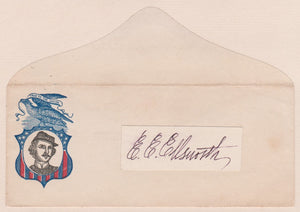 E. E. Ellsworth